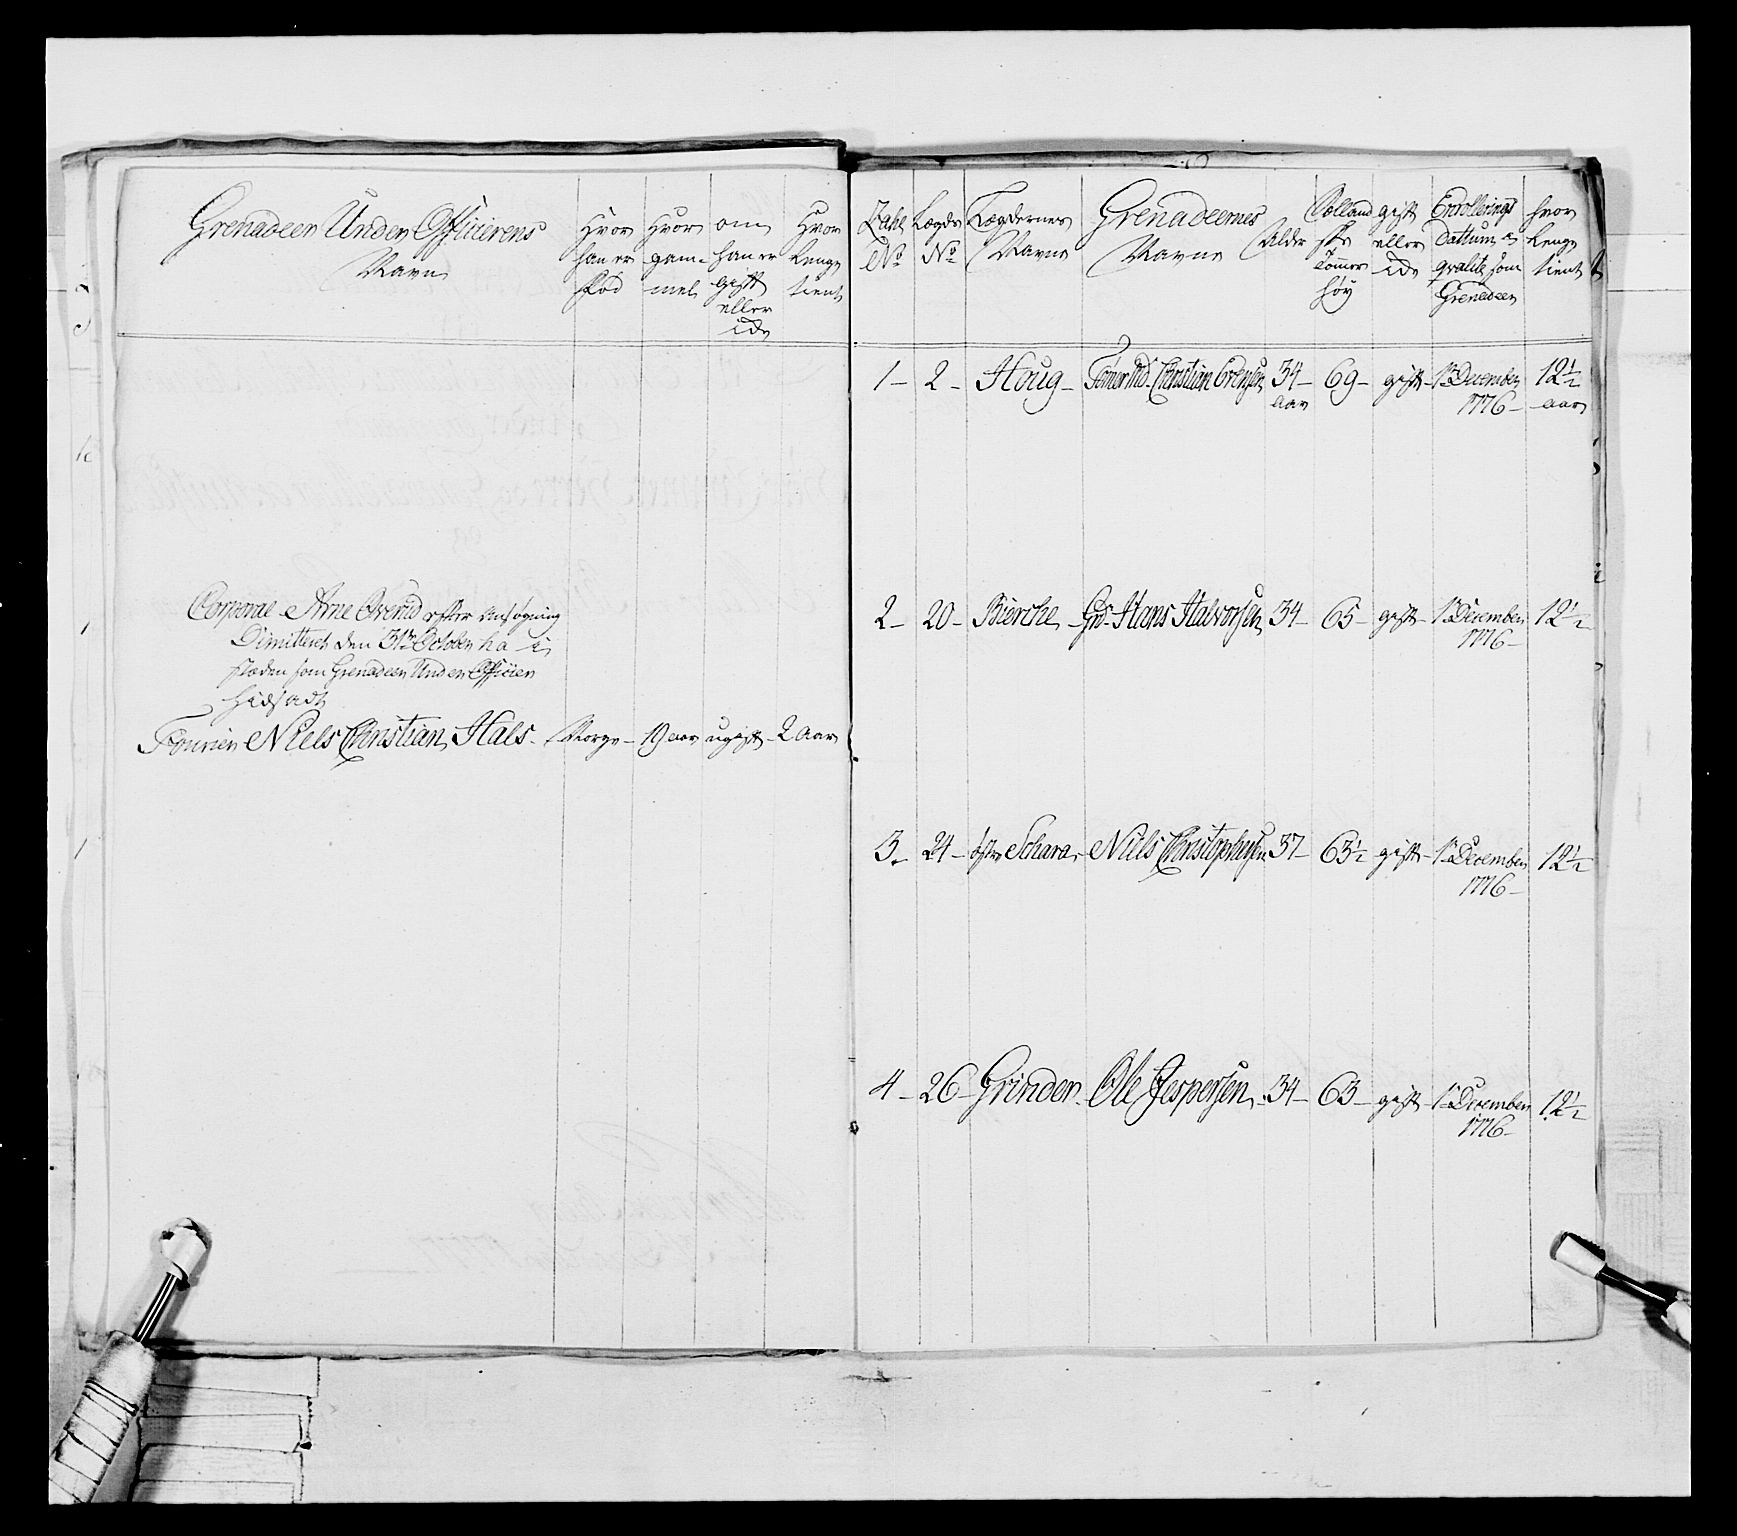 Grenadeer Under Officierens
Navne
Hvor
han er
fød
Hvor
gam-
mel
om
han er
gift
eller
ide
Hvor
Lenge
tient
Corporal Arne Overud efter Ansøgning
Dimitteret den 31te October h a i
stæden som Grenadeer Under Officier
hidsadt
Fourier Niels Christian Hals - Norge - 19 aar ugift - 2 aar
No
Lægds
No
Lægdernes
Navne
Grenadeernes
Navne
Alder
Tommer
høy
gift
eller
ide
Enrollerings
Dattum
qvalite som
Grenadeer
hvor
Lenge
tient
1 - 2 - Houg - Christian 34 - 69 - gift - 1te December 12 1/2
aar 1776 - aar
2 - 20 - Bierche - Hans Halvorsen 34 - 65 - gift - 1te December 12 1/2
1776 -
3 - 24 - Schara - Niels Christophersen 37 - 63 1/2 gift - 1te December 12 1/2
1776 -
4 - 26 - Grinder - Ole Jespersen - 34 - 63 - gift - 1te December 12 1/2
1776 -